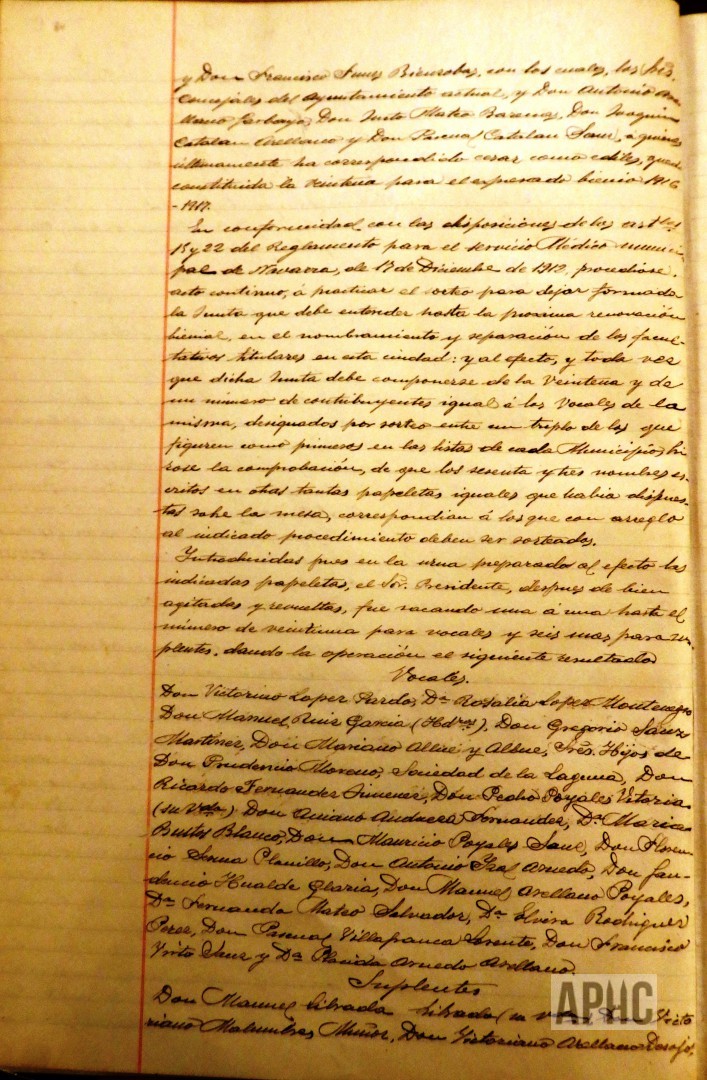 y Don Francisco Bienzobas, con los cuales, los Sres.
Concejales del Ayuntamiento actual, y Don Antonio
Don Justo Mateo Don Joaquin
Catalan Arellano y Don Pascual Catalan Sanz, á quienes
últimamente ha correspondido cesar como ediles, queda
constituida la veintena para el expresado bienio 1916
-1917.
En conformidad con las disposiciones de los
15 y 22 del Reglamento para el servicio Médico munici-
pal de Navarra, de 17 de Diciembre de 1912, procedióse,
acto continuo, á practicar el sorteo para dejar formada
la Junta que debe entender hasta la proxima renovación
bienal, en el nombramiento y separación de los facul-
tativos titulares en esta ciudad: y al efecto, y toda vez
que dicha Junta debe componerse de la Veintena y de
un número de contribuyentes igual á los Vocales de la
misma, designados por sorteo entre un triplo de los que
figuren como primeros en las listas de cada Municipio, hi-
zose la comprobación, de que los sesenta y tres nombres es-
critos en otras tantas papeletas iguales que había dispues-
tas sobre la mesa, correspondian á los que con arreglo
al indicado procedimiento deben ser sorteados.
Introducidas pues en la urna preparada al efecto las
indicadas papeletas, el Sor. Presidente, despues de bien
agitadas y revueltas, fue sacando una á una hasta el
número de veintiuna para vocales y seis mas para su-
plentes, dando la operación el siguiente resultado
Vocales.
Don Victorino Lopez Pardo, Da. Rosalia Lopez Montenegro
Don Manuel Ruiz Garcia (Hdros), Don Gregorio Sanz
Martinez, Don Mariano Allue y Allue, Sres. Hijos de
Don Prudencio Moreno, Sociedad de la Laguna, Don
Ricardo Fernandez Jimenez, Don Pedro Poyales Vitoria
(su Vda) Don Fernandez, Da. Maria
Blanco, Don Mauricio Poyales Sanz, Don Floren-
cio Serma Planillo, Don Antonio Arnedo, Don Fau-
dencio Hualde Glaria, Don Manuel Arellano Poyales,
Da. Fernanda Mateo Salvador, Da. Elvira Rodriguez
Perez, Don Pascual Villafranca Lorente, Don Francisco
Sanz y Da. Placida Arnedo Arellano.
Suplentes
Don Manuel Librada Librada Don Victo
riano Malumbres Muñoz, Don Victoriano Arellano
APHC